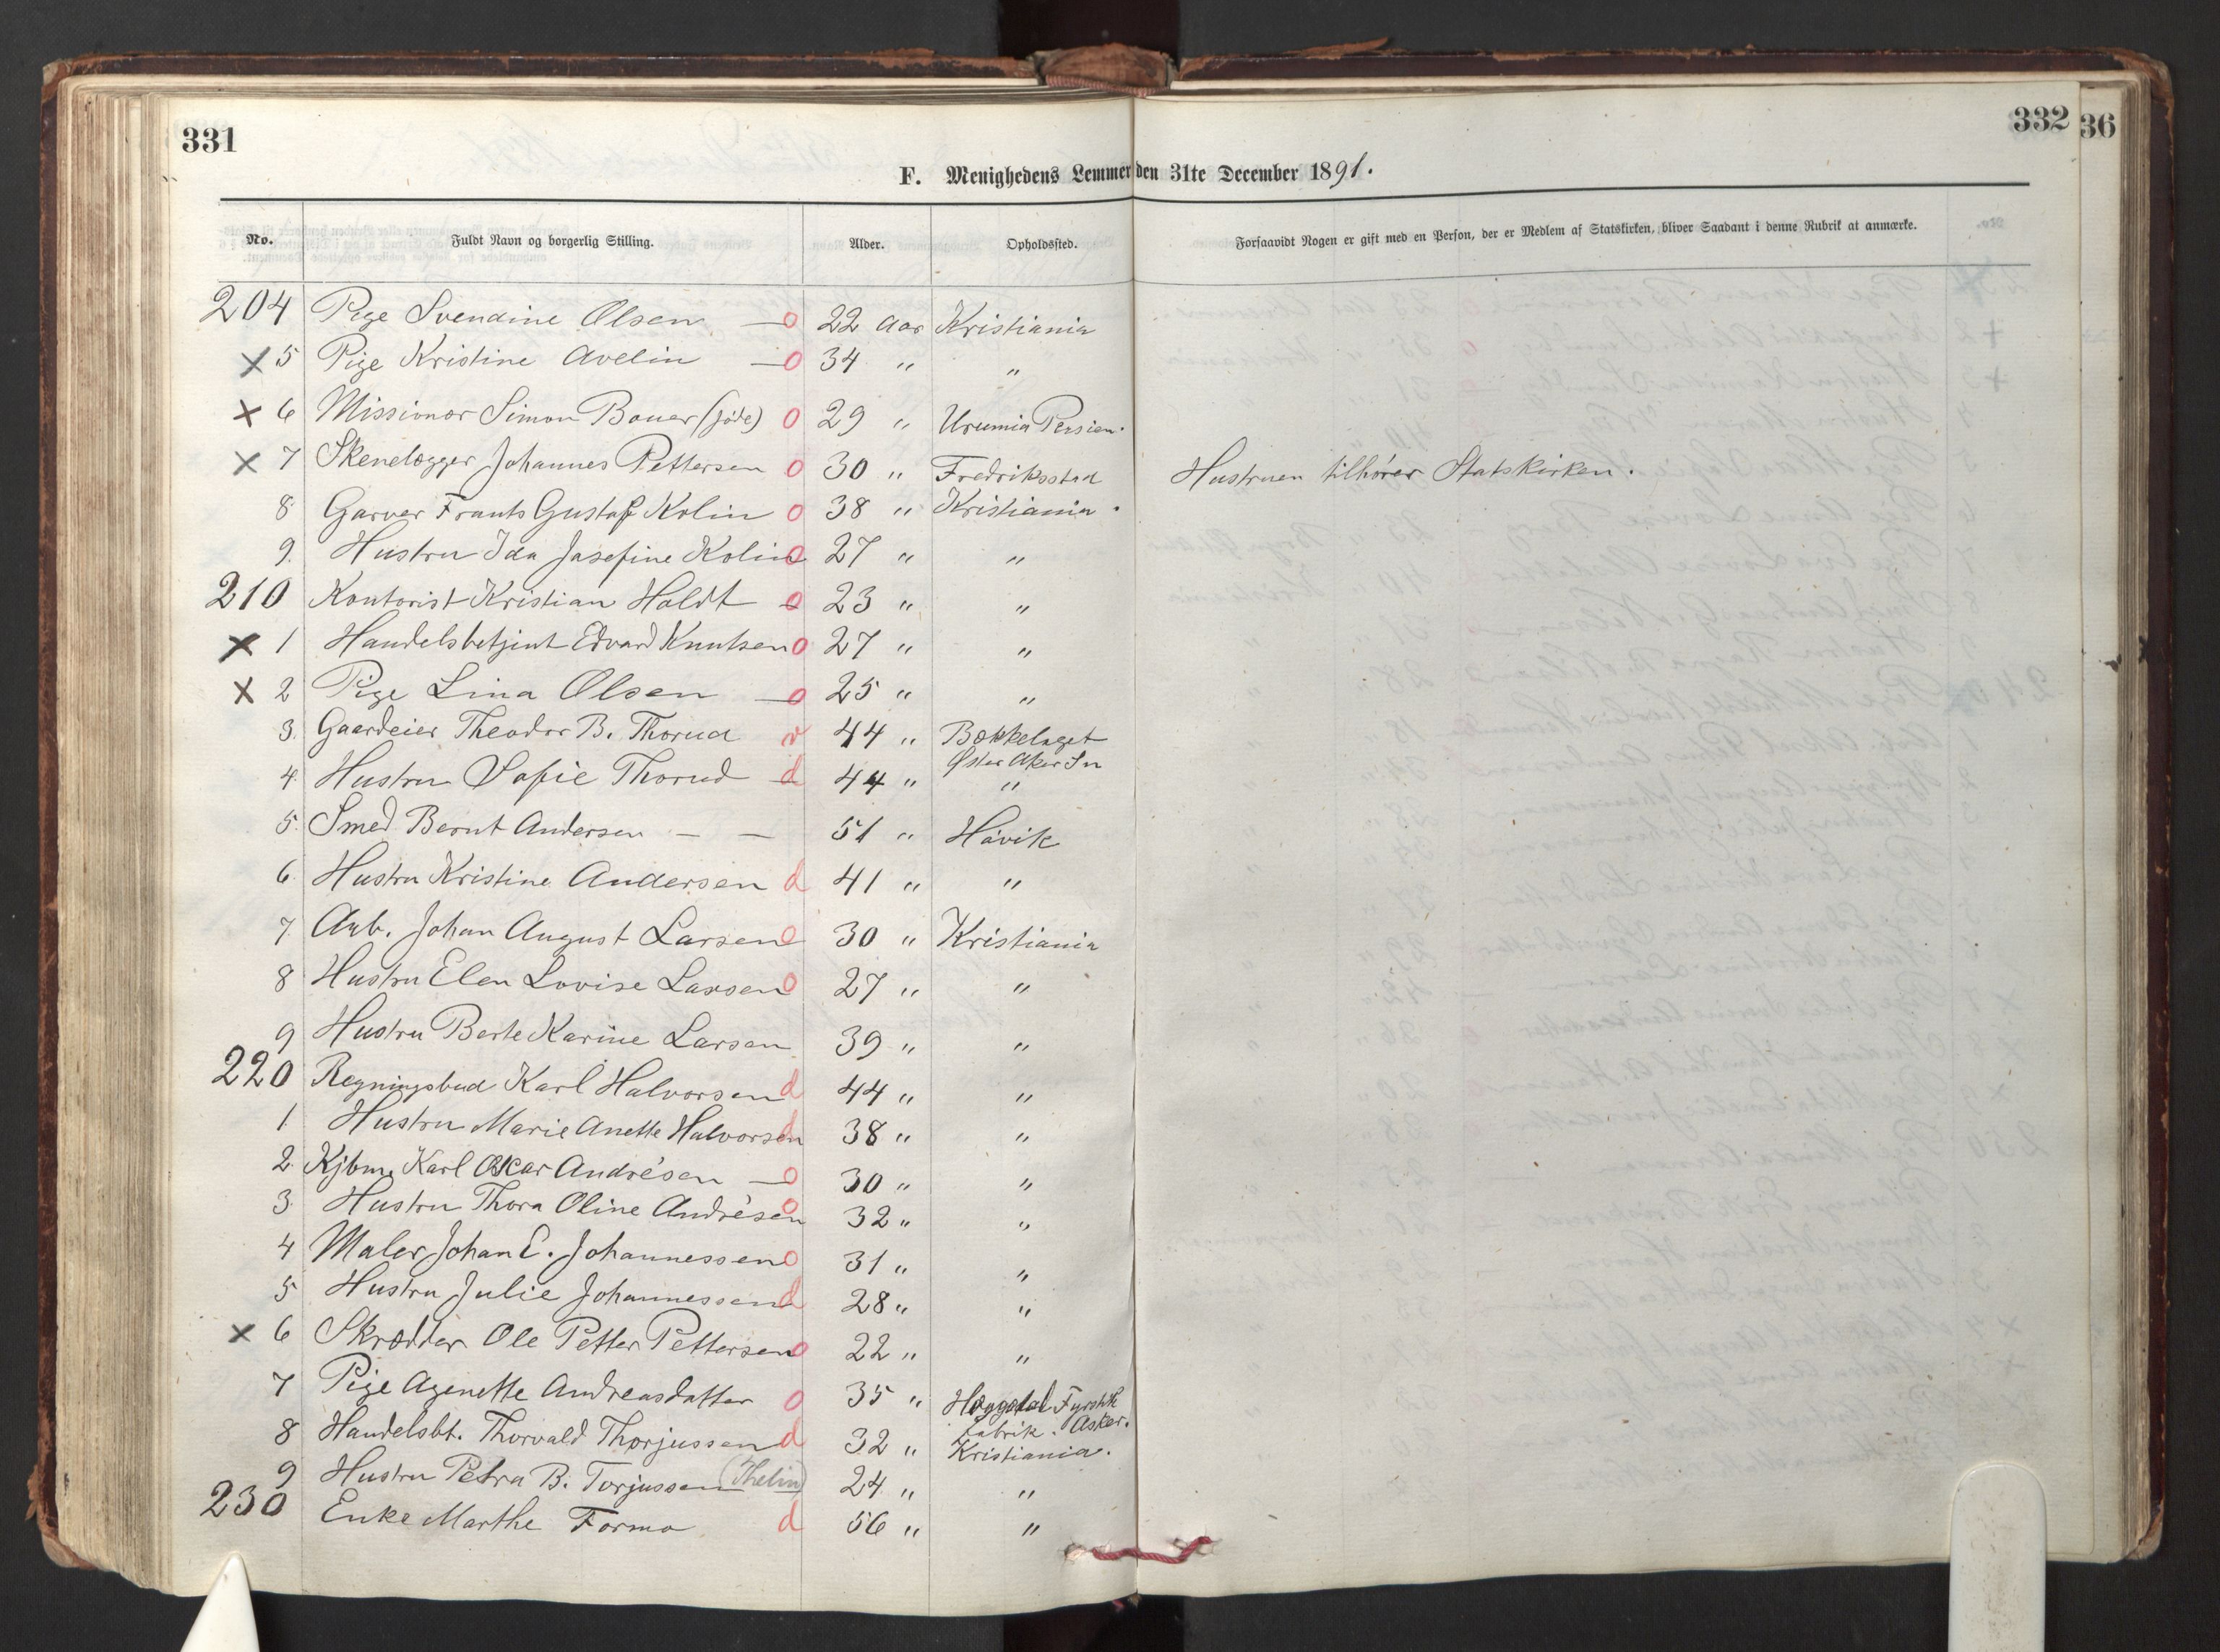 331
332 36
F. Menighedens Lemmer den 31te December 1891.
No. Fuldt Navn og borgerlig Stilling. Alder. Opholdssted. Forsaavidt Nogen er gift med en Person, der er Medlem af Statskirken, bliver Saadant i denne Rubrik at anmærke.
204 Pige Svendine Olsen — o 22 Aar Kristiania
x 5 Pige Kristine Avelin — o 34 " "
x 6 Missionær Simon Bauer (jøde) o 29 " Urumia Persien.
x 7 Skenelægger Johannes Pettersen o 30 " Fredriksstad Hustruen tilhører Statskirken.
8 Garver Frants Gustaf Kolin o 38 " Kristiania.
9. Hustru Ida Josefine Kolin o 27 " "
210 Kontorist Kristian Holdt o 23 " "
x 1 Handelsbetjent Edvard Knutsen o 27 " "
x 2 Pige Lina Olsen — o 25 " "
3. Gaardeier Theodor B. Thorud v 44 " Bækkelaget
Øster Aker Sn
4. Hustru Sofie Thorud d 44 " "
5. Smed Bernt Andersen — — 51 " Høvik
6. Hustru Kristine Andersen d 41 " "
7 Arb. Johan August Larsen o 30 " Kristiania
8 Hustru Elen Lovise Larsen o 27 " "
9 Hustru Berte Karine Larsen 39 " "
220 Regningsbud Karl Halvorsen d 44 " "
1 Hustru Marie Anette Halvorsen d 38 " "
2. Kjbm. Karl Oskar Andrésen — o 30 " "
3. Hustru Thora Oline Andrésen o 32 " "
4 Maler Johan E. Johannessen o 31 " "
5 Hustru Julie Johannessen d 28 " "
x 6 Skrædder Ole Petter Pettersen o 22 " "
7 Pige Agenette Andreasdatter o 35 " Fyrstik
fabrik. Asker.
8 Handelsbt. Thorvald Thorjussen d 32 " Kristiania.
9 Hustru Petra B. Torjussen (Thelin) 24 " "
230 Enke Marthe Formo d 56 " "